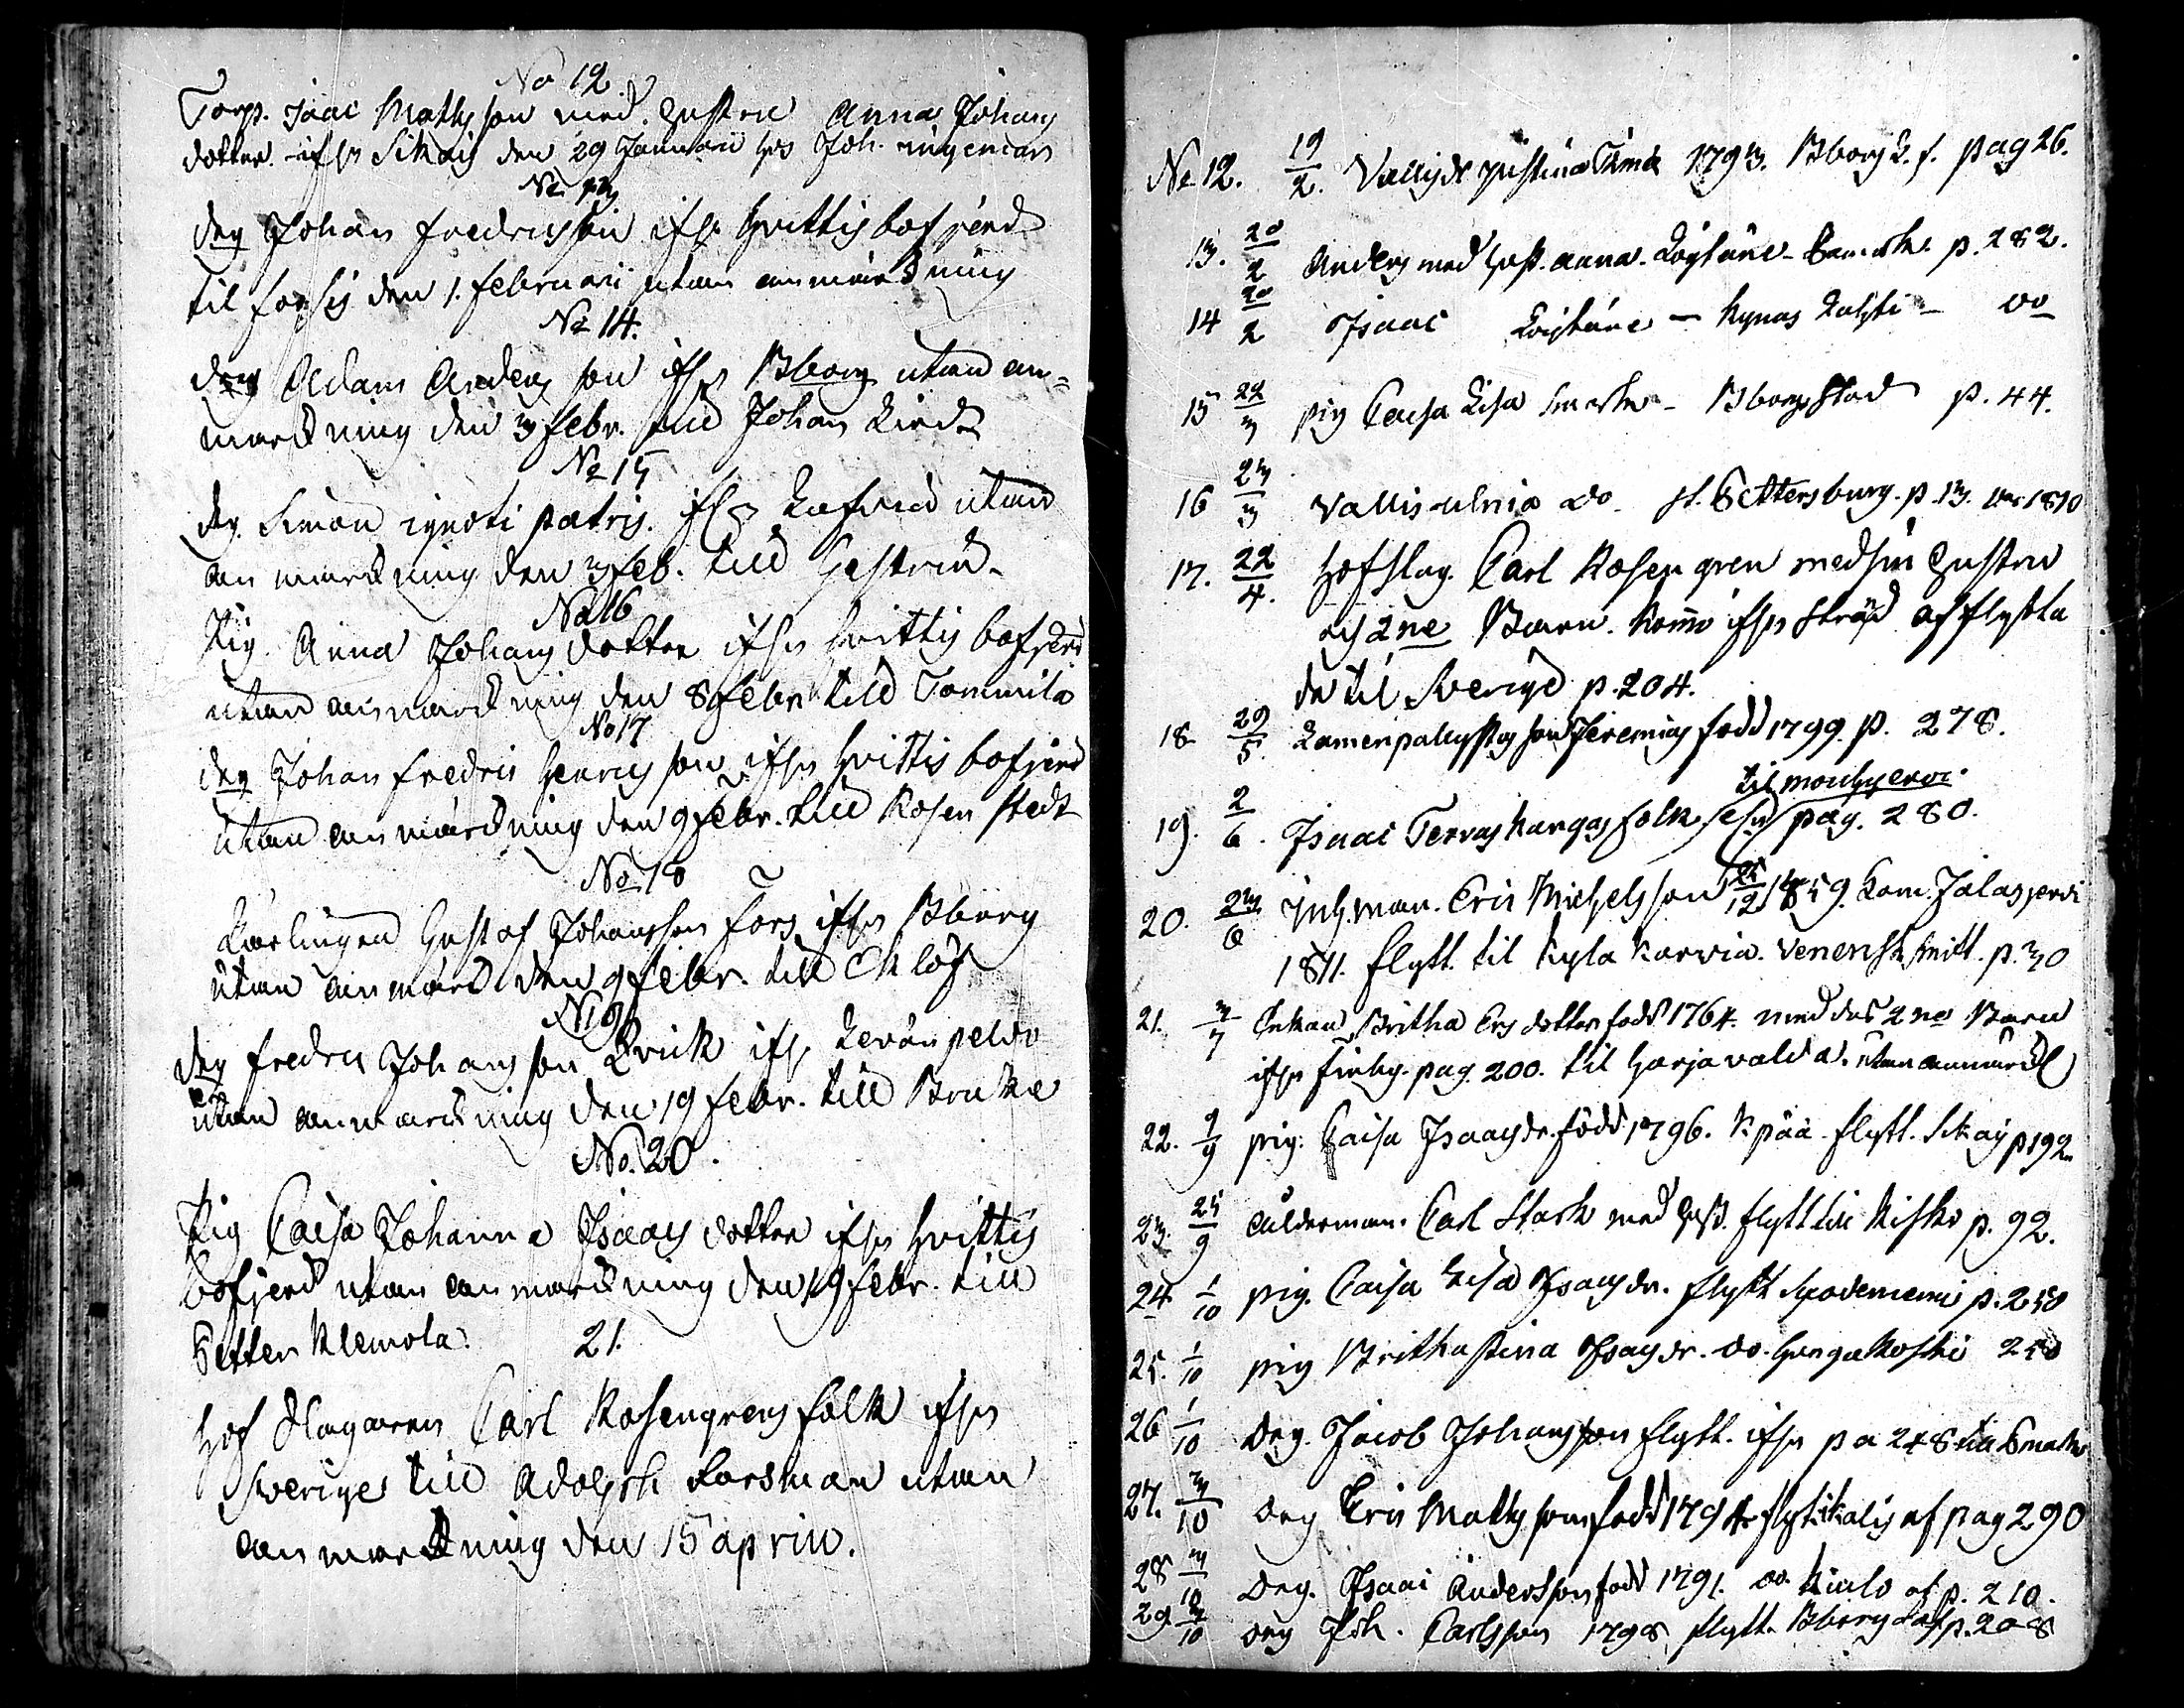 No 12.
Torp. Isaac Mathsson med hustru Anna Johans
dotter ifrån Sikais den 29 Januari hos Joh.
No 13
drg Johan Fredricsson ifr. Hvittisbofjerd
til Forssis den 1. Februari utan anmärckning
No 14.
drg Adam Anders son ifrån Bborg utan an=
märckning den 3 Febr. till Johan Lind
No 15
drg. Simon ignoti patris. ifrån utan
anmärckning den 3 Feb. till
No 16
Pig. Anna Johans dotter ifrån Hvittisbofjerd
utan anmärckning den 8 Febr till Tommila
No 17
drg Johan Fredric Henrics son ifrån Hvittisbofjerd
utan anmärckning den 9 Febr. till Rosenstedt
No 18
Lärlingen Gustaf Johansson Fors ifrån Bborg
utan anmärck den 9 Febr. till Eklöf
No 19
drg Fredric Johansson Qvick ifr. Levänpeldo
utan anmärckning den 19 Febr. till Brake
No. 20.
Pig Caisa Johanna Isaacs dotter ifrån Hvittis
bofjerd utan anmärckning den 19 Febr. till
Petter Klemola.
21.
Hofslagaren Carl Rosengrens folk ifrån
Sverige till Adolph Forsman utan
anmärckning den 15 aprill.
No 12. 19/2. Vallisdr Justina 1793. Bborg L. f. pag 26.
13. 20/2 Anders med hust. Anna. p. 282.
14 20/2 Isaac - Kynas - do
15 22/3 pig Caisa Lisa - Bborgs stad p. 44.
16 23/3 Vallis Ulrica do. St. Pettersburg. p. 13. 1810
17. 22/4. Hofslag. Carl Rosengren med sin hustru
och 2ne Barn. komme ifrån afflytta
de til Sverige p. 204.
18 29/5. Lamenpallust son Jeremias född 1799. p. 278.
til mouhyervi.
19. 2/6. Isaac Tervaskangas folk pag. 280.
20. 23/6 Inh.man. Eric Michelsson 1859. kom. Jalasjervi
1811. flytt. til Kyla Karvia. p. 30
21. 3/7 Enkan Britha Ers dotter född 1764. med des 2ne Barn
ifrån Finby. pag. 200. til Harjavalda. utan anmärck
22. 9/9 pig. Caisa Isaacsdr. född 1796. Kpää. flytt. Sikais p 192.
23. 25/9 Ålderman. Carl Stark med hust. flytt till Kisko p. 92.
24. 1/10 pig. Caisa Lisa Isaacsdr. flytt p. 250
25. 1/10 pig Britha Stina Isaacsdr. do. Hongakoski 250
26 1/10 Drg. Jacob Johansson flytt. ifrån pa 248 till
27. 3/10 drg Eric Mathsson född 1794 flyt. af pag 290
28 3/10 Drg. Isaac Andersson född 1791. do. af p. 210.
29 3/10 drg Joh. Carlsson 1798 flytt. Bborg p. 208